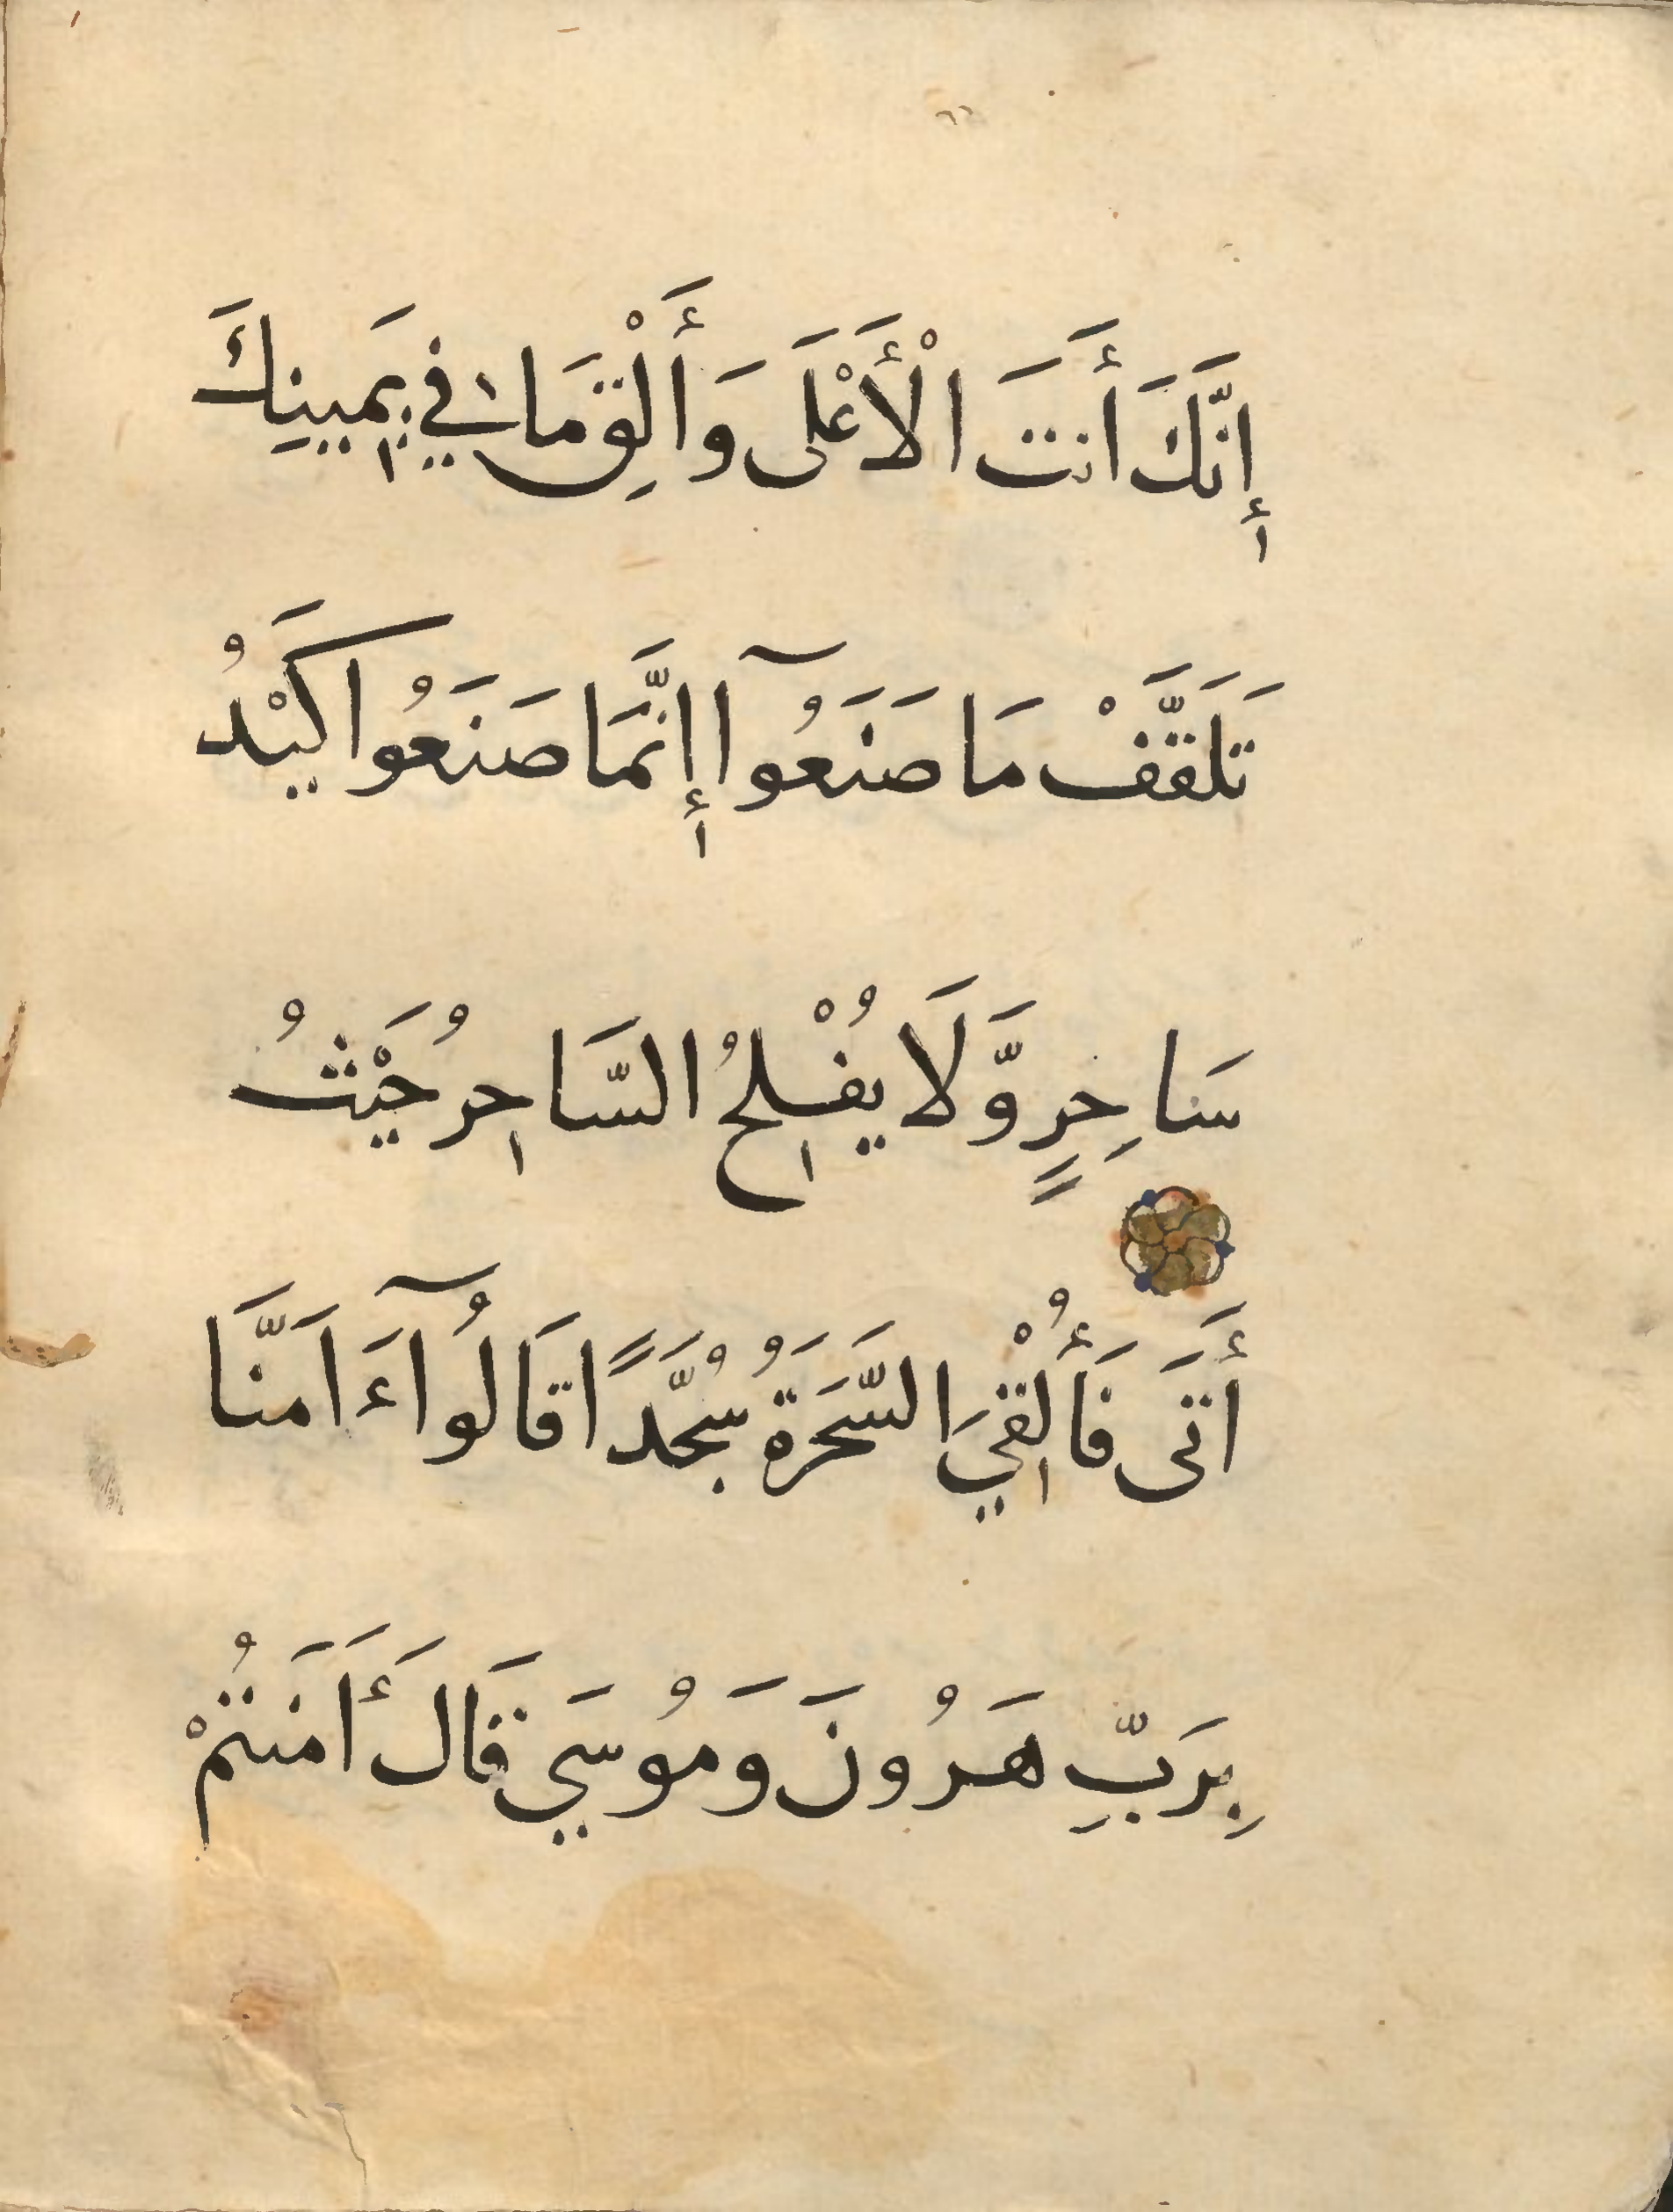 إِنَّكَ أَنتَ الْأَعْلَى وَأَلْقِ مَا فِي يَمِينِكَ
تَلَقَّفْ مَا صَنَعُوآ إِنَّمَا صَنَعُوا كَيْدُ
سَاحِرٍ وَّلَا يُفْلِحُ السَّاحِرُ حَيْثُ
أَتَى فَأُلْقِيَ السَّحَرَةُ سُجَّدًا قَالُوآ ءَامَنَّا
بِرَبِّ هَرُونَ وَمُوسَي قَالَ ءَامَنتُمْ